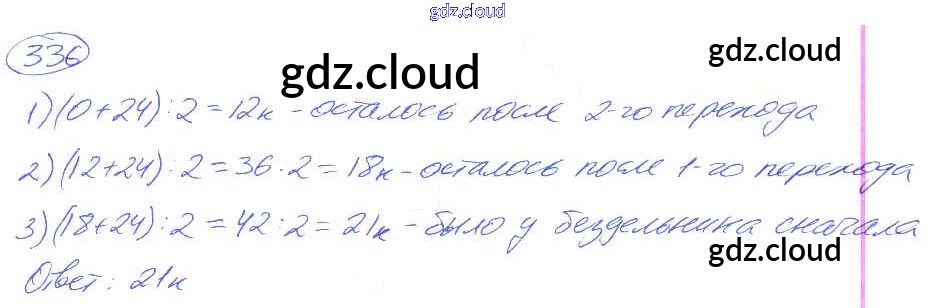 gdz.cloud
336
gdz.cloud
gdz.cloud
1) (0+24) : 2 = 12к - осталось после 2-го перехода
2) (12+24) : 2 = 36 : 2 = 18к - осталось после 1-го перехода
3) (18+24) : 2 = 42 : 2 = 21к - было у бездельника сначала
gdz.cloud
Ответ: 21к